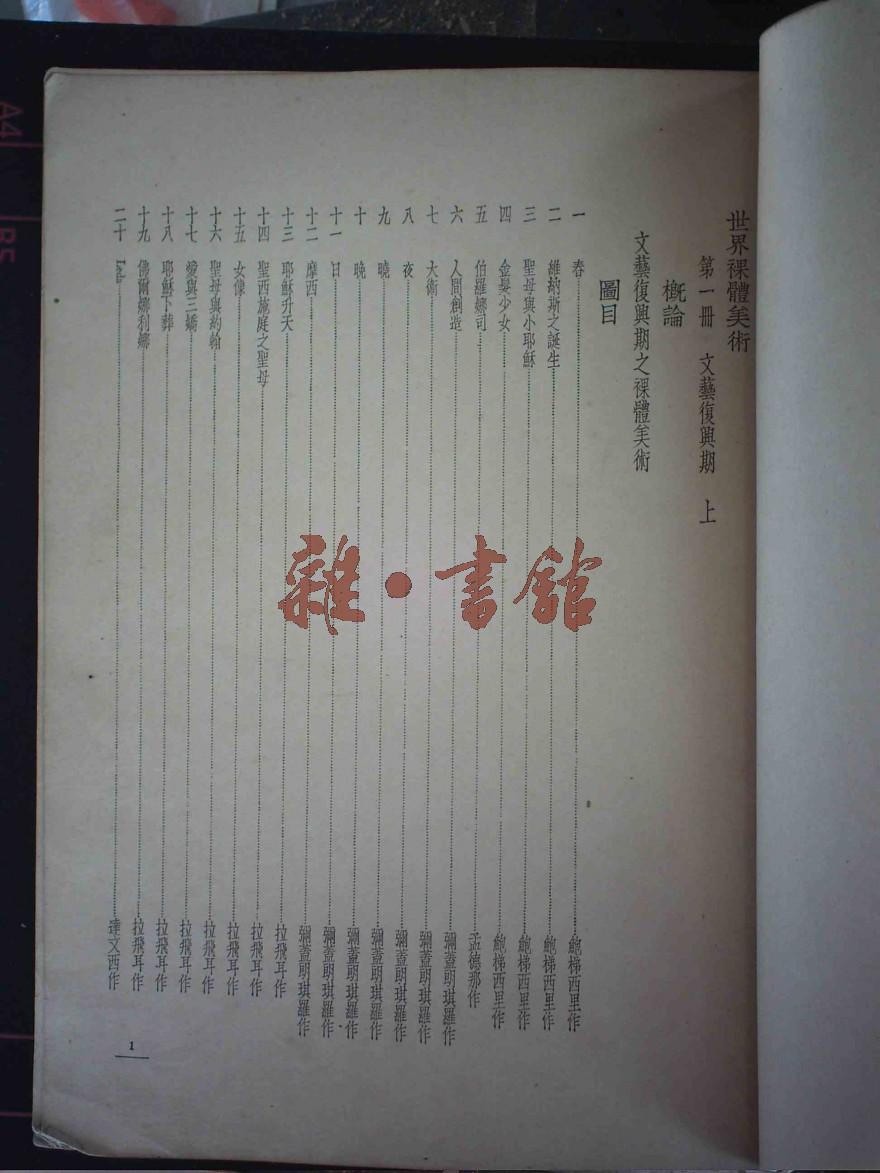 世界裸體美術
第一冊 文藝復興期 上
概論
文藝復興期之裸體美術
圖目
一 春 鮑梯西里作
二 維納斯之誕生 鮑梯西里作
三 聖母與小耶穌 鮑梯西里作
四 金髮少女 鮑梯西里作
五 伯羅娜司 孟德那作
六 人間創造 彌蓋朗琪羅作
七 大衛 彌蓋朗琪羅作
八 夜 彌蓋朗琪羅作
九 曉 彌蓋朗琪羅作
十 晚 彌蓋朗琪羅作
十一 日 彌蓋朗琪羅作
十二 摩西 彌蓋朗琪羅作
十三 耶穌升天 拉飛耳作
十四 聖西施庭之聖母 拉飛耳作
十五 女像 拉飛耳作
十六 聖母與約翰 拉飛耳作
十七 愛與三嬌 拉飛耳作
十八 耶穌下葬 拉飛耳作
十九 佛爾娜利娜 拉飛耳作
二十 達文西作
1
雜•書館
A4
B5